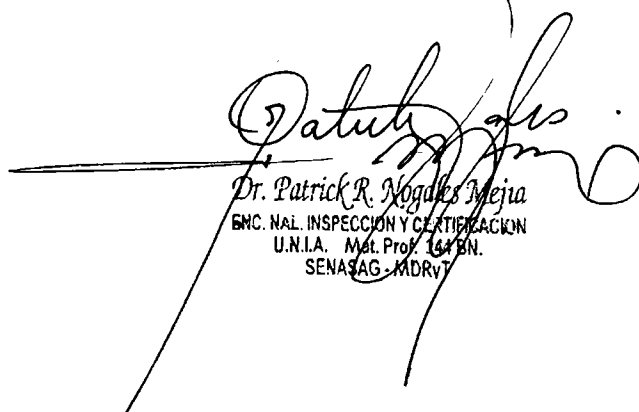 Dr. Patrick R. Nogales Mejia
ENC. NAL. INSPECCION Y CERTIFICACION
U.N.I.A. Mat. Prof. 141 BN.
SENASAG - MDRyT